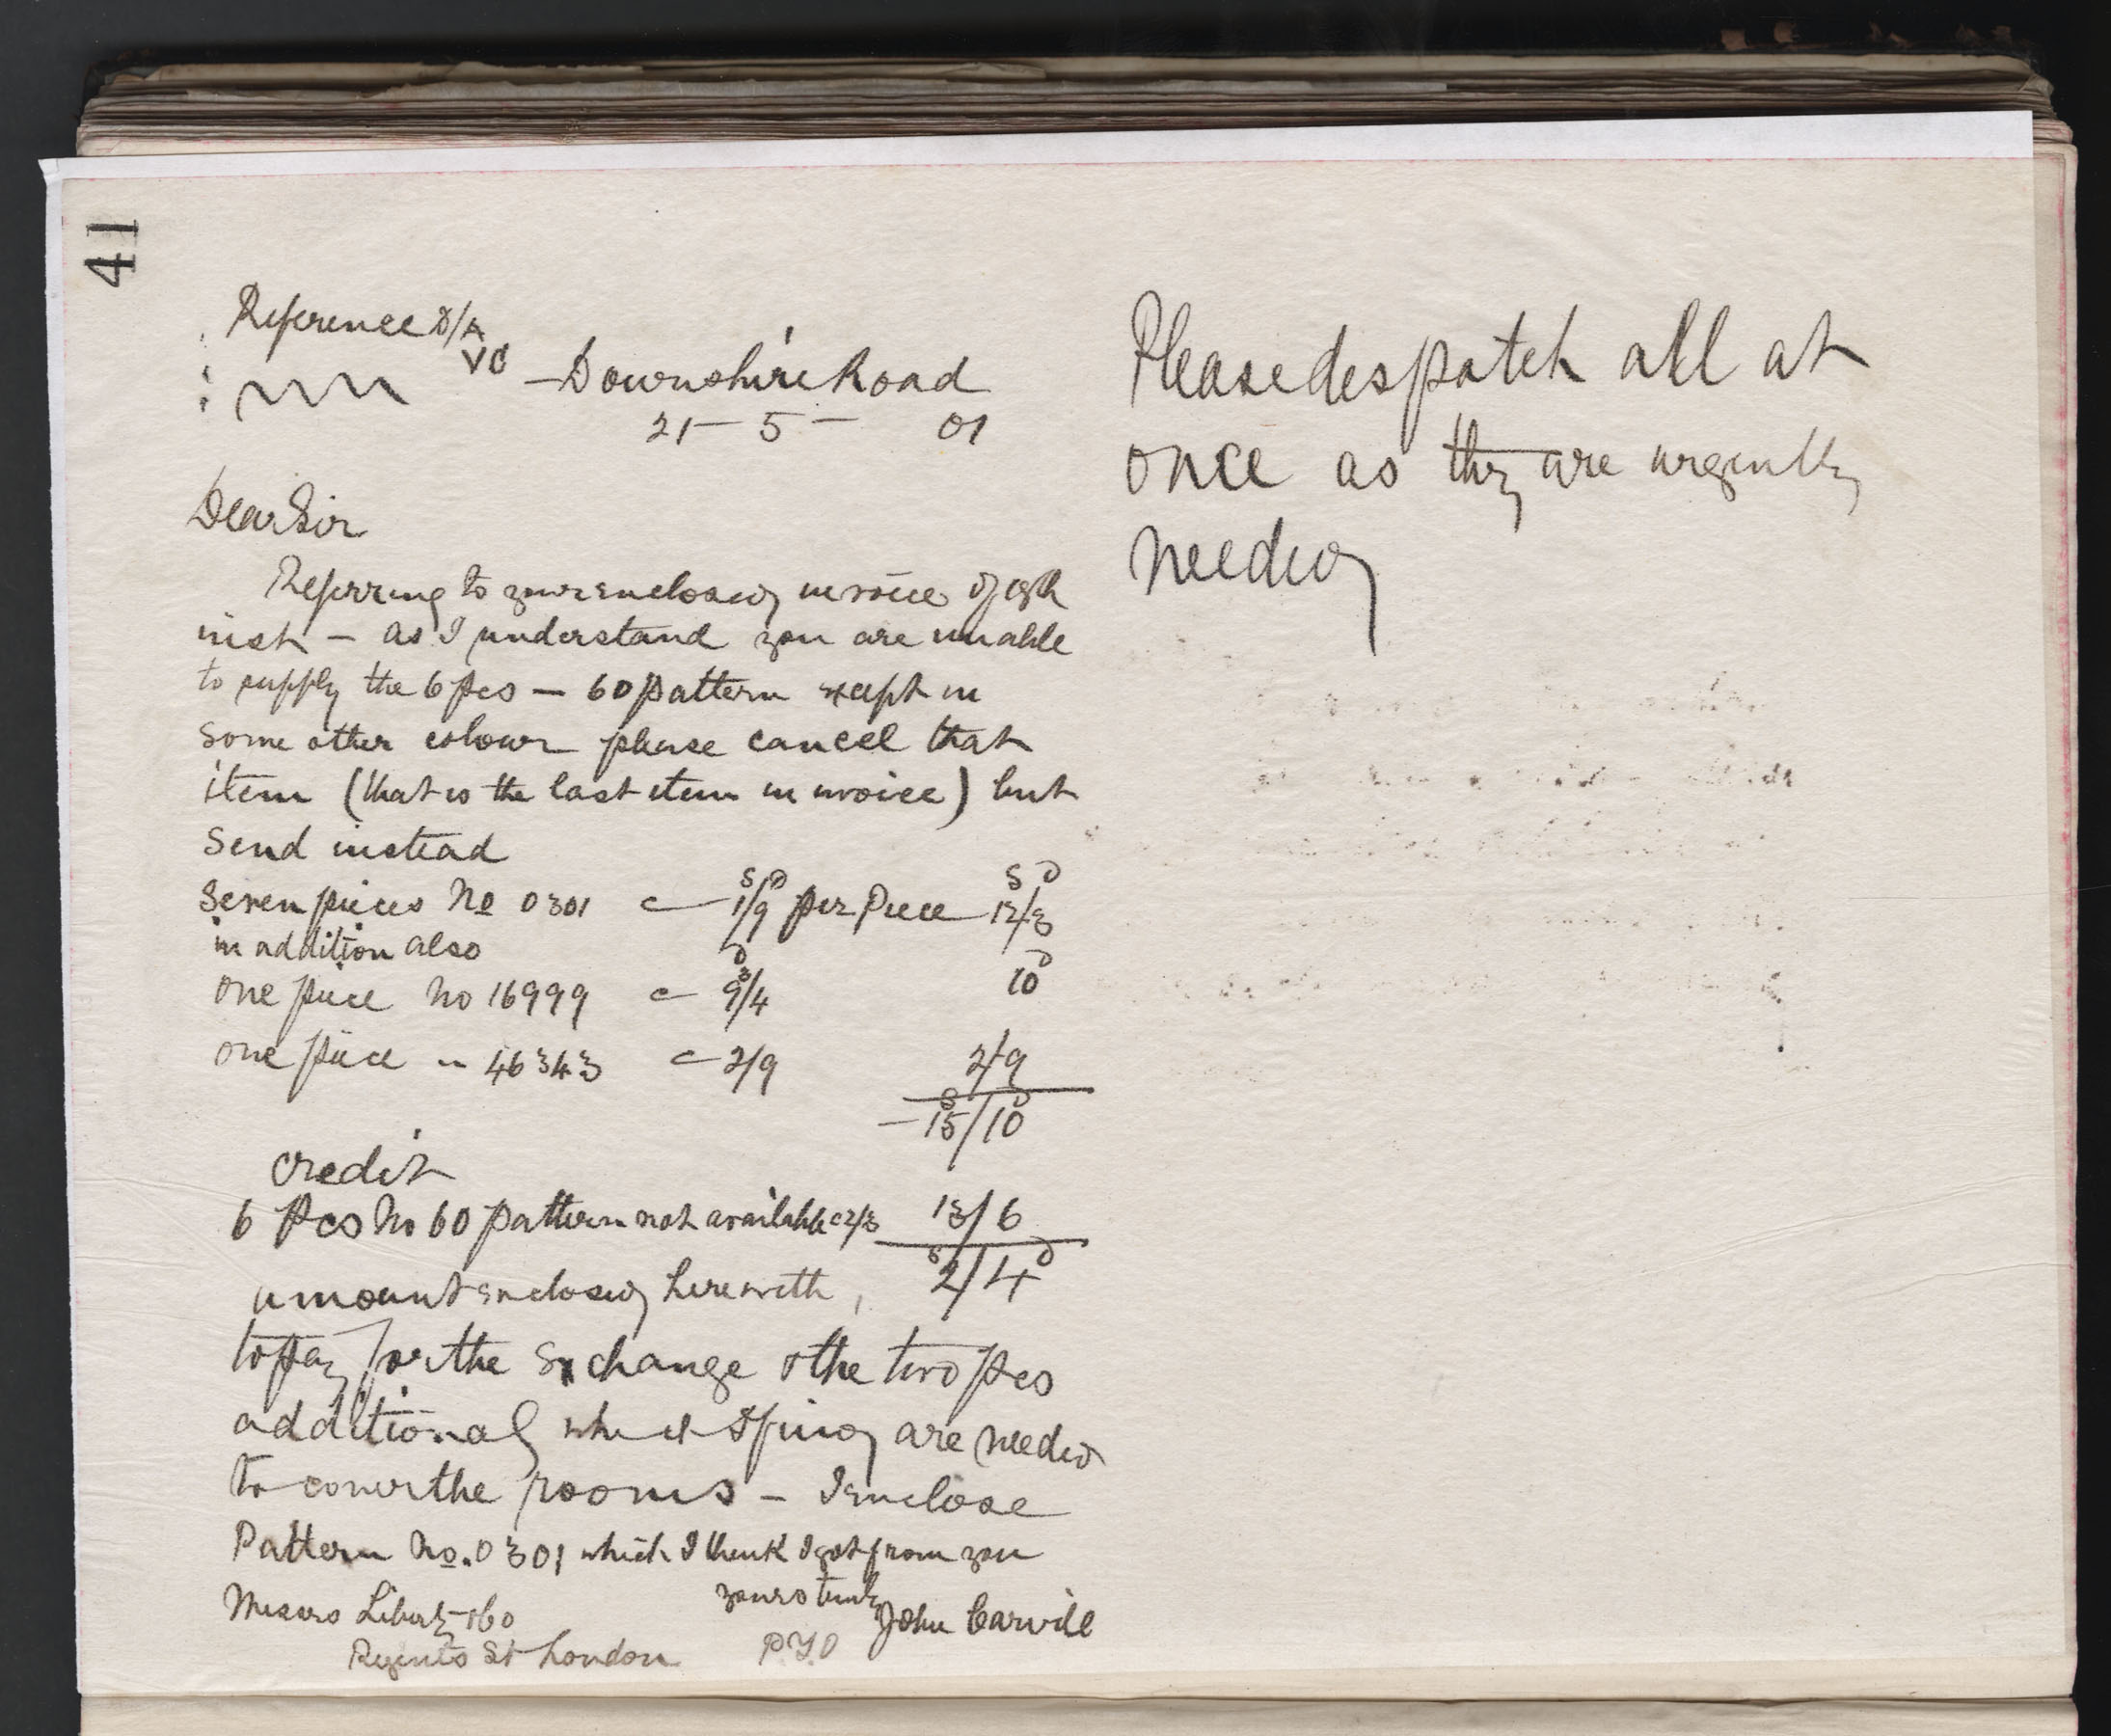 41
Reference D/A
VC
Downshire Road
21 - 5 - 01
Dear Sir
Referring to your enclosed invoice of
inst - as I understand you are unable
to supply the 6 pcs - 60 pattern except in
some other colour please cancel that
item (that is the last item in invoice) but
send instead
S D S D
Seven pieces No 0301 1/9 per Piece 12/3
in addition also
one piece No 16999 9 3/4 D 10 D
one piece " 46343 2/9 2/9
S D
15/10
Credit
6 Pcs No 60 pattern not available 2/3 13/6
S D
amount enclosed herewith, 2/4
to pay for the exchange & the two pcs
additional which I find are needed
to cover the rooms - I enclose
Pattern No. 0301 which I think I got from you
yours truly
Messrs Liberty & Co John Carvill
Regents St London PTO
Please despatch all at
once as they are urgently
needed